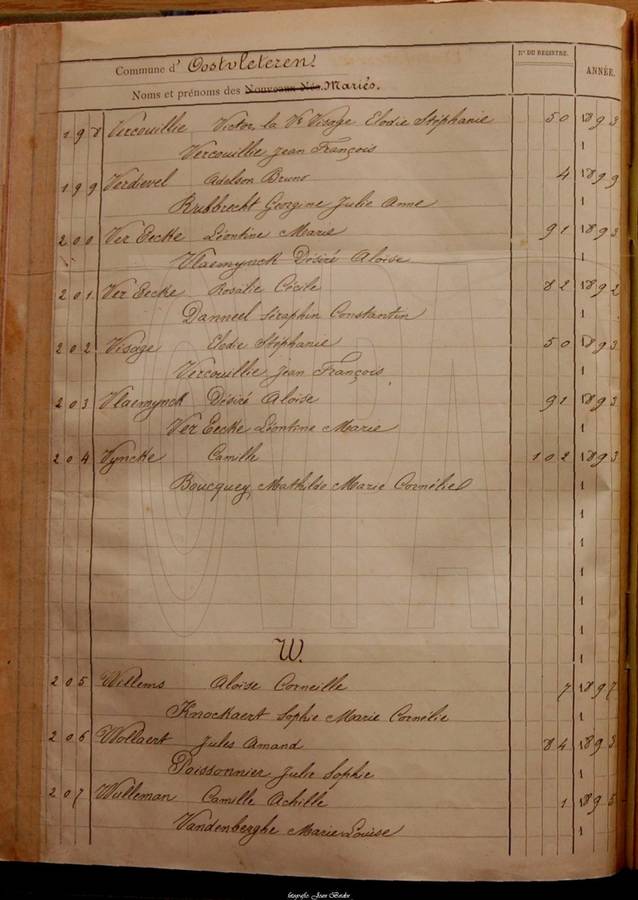 Commune d' Oostvleteren. N° DU REGISTRE. ANNÉE.
Noms et prénoms des Nouveaux Nés. Mariés.
198 Vercouillie Victor, la Vve Visage Elodie Stéphanie 50 1893
Vercouillie Jean François 1
199 Verdevel Adelson Bruno 4 1899
Rubbrecht Georgine Julie Anne 1
200 Ver Eecke Léontine Marie 91 1893
Vlaemynck Désiré Aloïse 1
201 Ver Eecke Rosalie Cécile 82 1892
Danneel Séraphin Constantin 1
202 Visage Elodie Stéphanie 50 1893
Vercouillie Jean François 1
203 Vlaemynck Désiré Aloïse 91 1893
Ver Eecke Léontine Marie 1
204 Vyncke Camille 102 1893
Boucquey Mathilde Marie Cornélie 1
1
1
1
1
1
W. 1
205 Willems Aloïse Corneille 7 1897
Knockaert Sophie Marie Cornélie 1
206 Wollaert Jules Amand 84 1893
Poissonnier Julie Sophie 1
207 Wulleman Camille Achille 1 1895
Vandenberghe Marie Louise 1